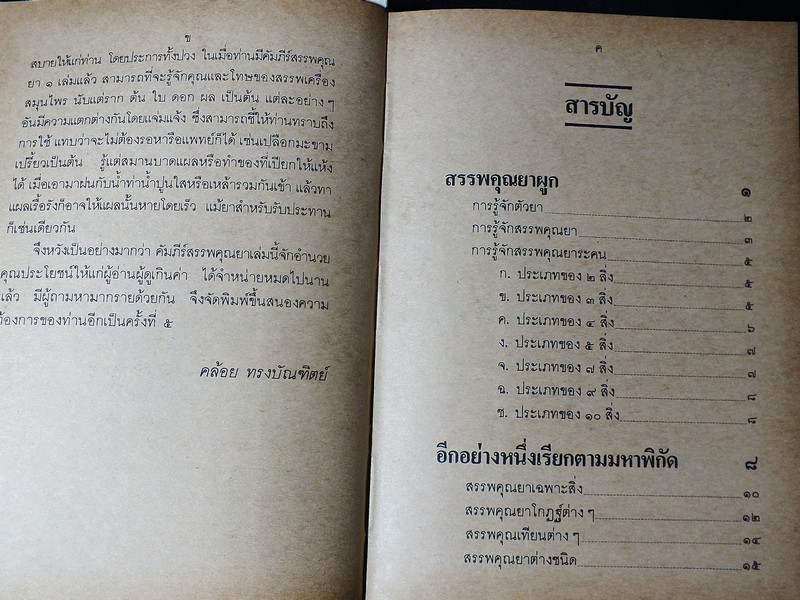 ข
สบายให้แก่ท่าน โดยประการทั้งปวง ในเมื่อท่านมีคัมภีร์สรรพคุณ
ยา ๑ เล่มแล้ว สามารถที่จะรู้จักคุณและโทษของสรรพเครื่อง
สมุนไพร นับแต่ราก ต้น ใบ ดอก ผล เป็นต้น แต่ละอย่าง ๆ
อันมีความแตกต่างกันโดยแจ่มแจ้ง ซึ่งสามารถชี้ให้ท่านทราบถึง
การใช้ แทบว่าจะไม่ต้องรอหารือแพทย์ก็ได้ เช่นเปลือกมะขาม
เปรี้ยวเป็นต้น รู้แต่สมานบาดแผลหรือทำของที่เปียกให้แห้ง
ได้ เมื่อเอามาฝนกับน้ำท่าน้ำปูนใสหรือเหล้ารวมกันเข้า แล้วทา
แผลเรื้อรังก็อาจให้แผลนั้นหายโดยเร็ว แม้ยาสำหรับรับประทาน
ก็เช่นเดียวกัน
จึงหวังเป็นอย่างมากว่า คัมภีร์สรรพคุณยาเล่มนี้จักอำนวย
คุณประโยชน์ให้แก่ผู้อ่านผู้ดูเกินค่า ได้จำหน่ายหมดไปนาน
แล้ว มีผู้ถามหามากรายด้วยกัน จึงจัดพิมพ์ขึ้นสนองความ
ต้องการของท่านอีกเป็นครั้งที่ ๕
คล้อย ทรงบัณฑิตย์
ค
สารบัญ
สรรพคุณยาผูก ๑
การรู้จักตัวยา ๒
การรู้จักสรรพคุณยา ๓
การรู้จักสรรพคุณยาระคน ๕
ก. ประเภทของ ๒ สิ่ง ๕
ข. ประเภทของ ๓ สิ่ง ๕
ค. ประเภทของ ๔ สิ่ง ๖
ง. ประเภทของ ๕ สิ่ง ๗
จ. ประเภทของ ๗ สิ่ง ๗
ฉ. ประเภทของ ๙ สิ่ง ๘
ช. ประเภทของ ๑๐ สิ่ง ๘
อีกอย่างหนึ่งเรียกตามมหาพิกัด ๘
สรรพคุณยาเฉพาะสิ่ง ๑๐
สรรพคุณยาโกฏฐ์ต่าง ๆ ๑๒
สรรพคุณเทียนต่าง ๆ ๑๔
สรรพคุณยาต่างชนิด ๑๕